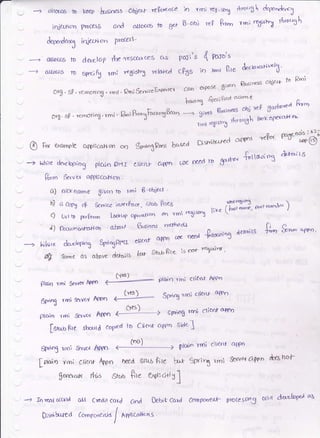 → allows to keep business object reference in rmi registry through dependency
injection process and allows to get B-obj ref from rmi registry through
dependency injection process.
→ allows to develop the resources as pojo's & POJO's
→ allows to specify rmi registry related cfgs in xml file declaratively.
org.sf.remoting.rmi.RmiServiceExporter can expose given Business object to Rmi
having specified name
org.sf.remoting.rmi.RmiProxyFactoryBean → gives Business obj ref gathered from
rmi registry through lookup operation
⊛ For example application on SpringRmi based Distributed appns refer page nos:
→ While developing plain RMI client appn we need to gather following details
from server application.
a) nickname given to rmi B-object.
b) a copy of Service interface, stub files
c) Url to perform lookup operation on rmi registry like (host name, port number)
d) Documentation about Business methods
→ While developing SpringRMI client appn we need following details from server appn.
Same as above details but stub file is not require.
(yes)
plain rmi Server Appn ← plain rmi client Appn
(yes)
Spring rmi server Appn ← Spring rmi client appn
(yes)
plain rmi server Appn ← → spring rmi client appn
[stub file should copied to client appn side]
(no)
spring rmi server Appn ← → plain rmi client appn
[plain rmi client Appn need stub file but Spring rmi server appn does not
generate this stub file explicitly]
→ In real world all credit card and Debit card component processing are developed as
Distributed Components / Applications